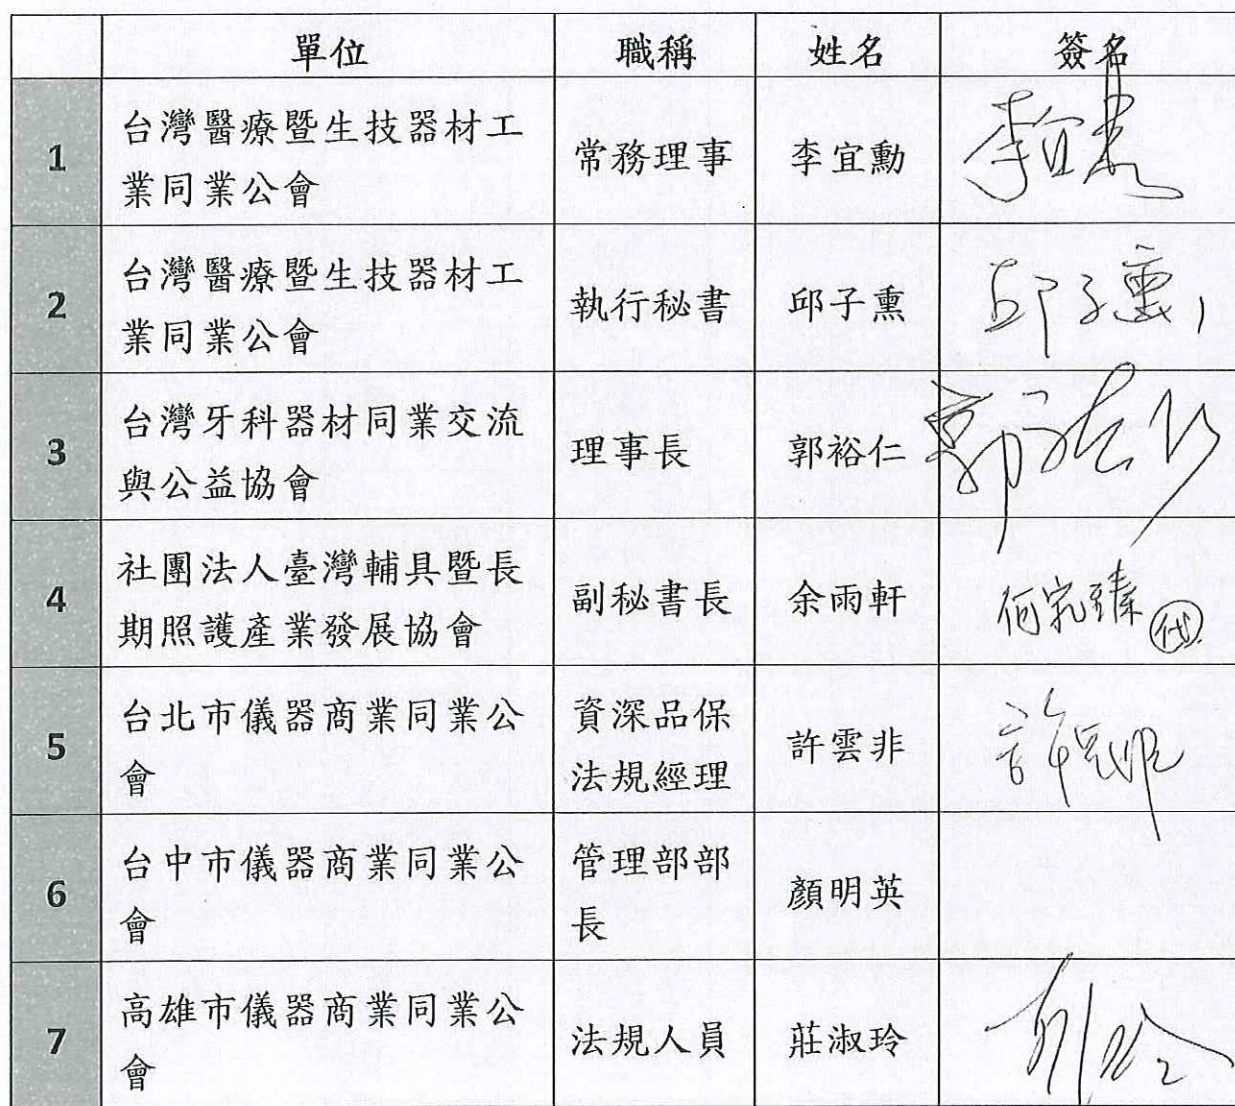 單位 職稱 姓名 簽名
1 台灣醫療暨生技器材工
業同業公會 常務理事 李宜勳 李宜勳
2 台灣醫療暨生技器材工
業同業公會 執行秘書 邱子熏 邱子熏
3 台灣牙科器材同業交流
與公益協會 理事長 郭裕仁 郭裕仁
4 社團法人臺灣輔具暨長
期照護產業發展協會 副秘書長 余雨軒 代
5 台北市儀器商業同業公
會 資深品保
法規經理 許雲非 許雲非
6 台中市儀器商業同業公
會 管理部部
長 顏明英
7 高雄市儀器商業同業公
會 法規人員 莊淑玲